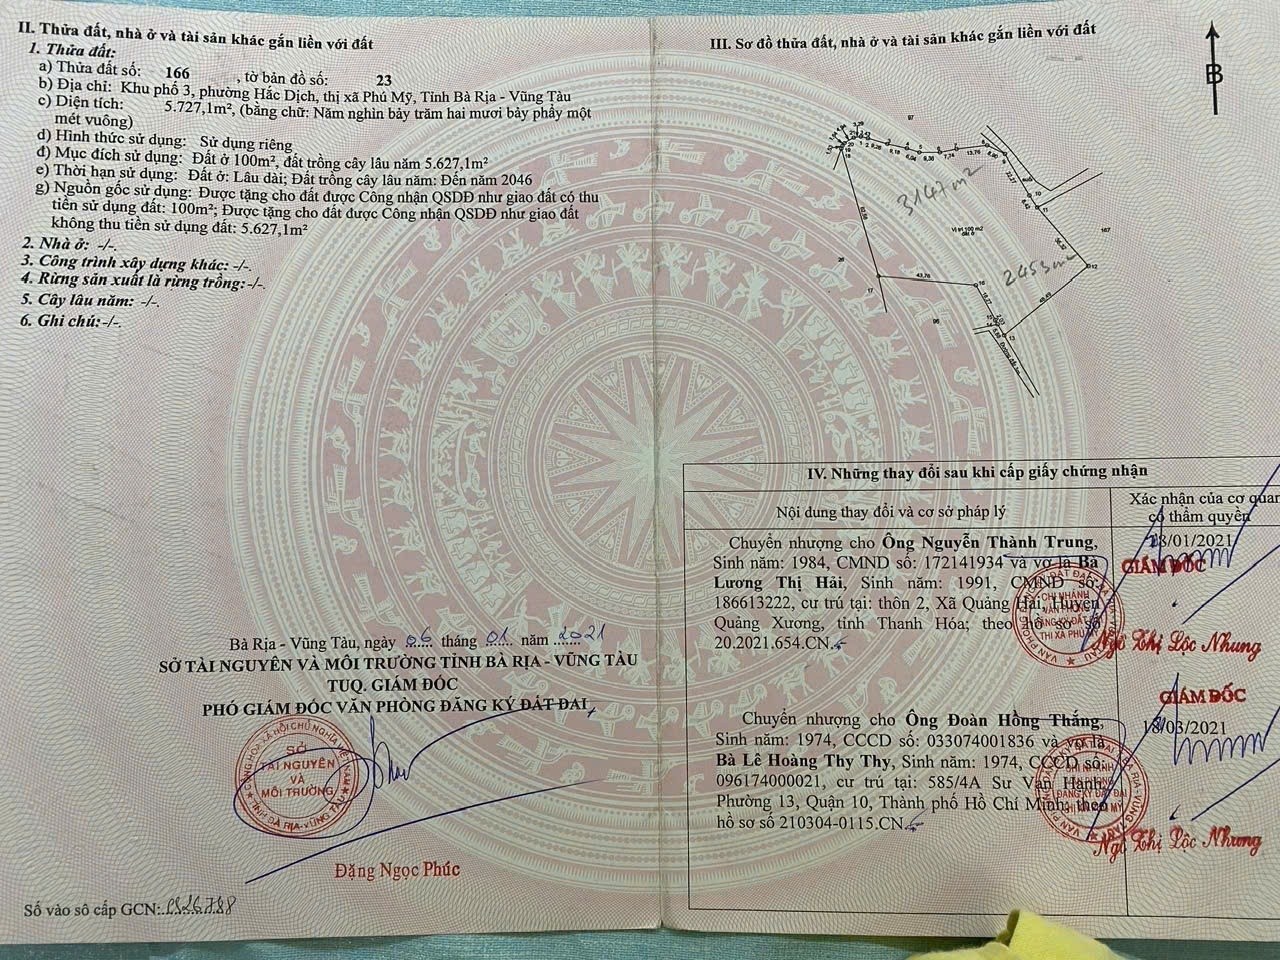 II. Thửa đất, nhà ở và tài sản khác gắn liền với đất
1. Thửa đất:
a) Thửa đất số: 166 , tờ bản đồ số: 23
b) Địa chỉ: Khu phố 3, phường Hắc Dịch, thị xã Phú Mỹ, Tỉnh Bà Rịa - Vũng Tàu
c) Diện tích: 5.727,1m², (bằng chữ: Năm nghìn bảy trăm hai mươi bảy phẩy một
mét vuông)
d) Hình thức sử dụng: Sử dụng riêng
đ) Mục đích sử dụng: Đất ở 100m², đất trồng cây lâu năm 5.627,1m²
e) Thời hạn sử dụng: Đất ở: Lâu dài; Đất trồng cây lâu năm: Đến năm 2046
g) Nguồn gốc sử dụng: Được tặng cho đất được Công nhận QSDĐ như giao đất có thu
tiền sử dụng đất: 100m²; Được tặng cho đất được Công nhận QSDĐ như giao đất
không thu tiền sử dụng đất: 5.627,1m²
2. Nhà ở: -/-.
3. Công trình xây dựng khác: -/-.
4. Rừng sản xuất là rừng trồng:-/-.
5. Cây lâu năm: -/-.
6. Ghi chú:-/-.
Bà Rịa - Vũng Tàu, ngày 06 tháng 01 năm 2021
SỞ TÀI NGUYÊN VÀ MÔI TRƯỜNG TỈNH BÀ RỊA - VŨNG TÀU
TUQ. GIÁM ĐỐC
PHÓ GIÁM ĐỐC VĂN PHÒNG ĐĂNG KÝ ĐẤT ĐAI
SỞ
TÀI NGUYÊN
VÀ
MÔI TRƯỜNG
Đặng Ngọc Phúc
Số vào sổ cấp GCN:
III. Sơ đồ thửa đất, nhà ở và tài sản khác gắn liền với đất
B
97
3147 m²
Vị trí 100 m2
đất ở
167
2453 m²
26
12
43,76
16
17
96
13
IV. Những thay đổi sau khi cấp giấy chứng nhận
Nội dung thay đổi và cơ sở pháp lý
Xác nhận của cơ quan
có thẩm quyền
Chuyển nhượng cho Ông Nguyễn Thành Trung,
Sinh năm: 1984, CMND số: 172141934 và vợ là Bà
Lương Thị Hải, Sinh năm: 1991, CMND số:
186613222, cư trú tại: thôn 2, Xã Quảng Hải, Huyện
Quảng Xương, tỉnh Thanh Hóa; theo hồ sơ số
20.2021.654.CN.
18/01/2021
GIÁM ĐỐC
CHI NHÁNH
VĂN PHÒNG
ĐĂNG KÝ ĐẤT ĐAI
THỊ XÃ PHÚ MỸ
Ngô Thị Lộc Nhung
Chuyển nhượng cho Ông Đoàn Hồng Thắng,
Sinh năm: 1974, CCCD số: 033074001836 và vợ là
Bà Lê Hoàng Thy Thy, Sinh năm: 1974, CCCD số:
096174000021, cư trú tại: 585/4A Sư Vạn Hạnh,
Phường 13, Quận 10, Thành phố Hồ Chí Minh; theo
hồ sơ số 210304-0115.CN.
GIÁM ĐỐC
18/03/2021
Ngô Thị Lộc Nhung